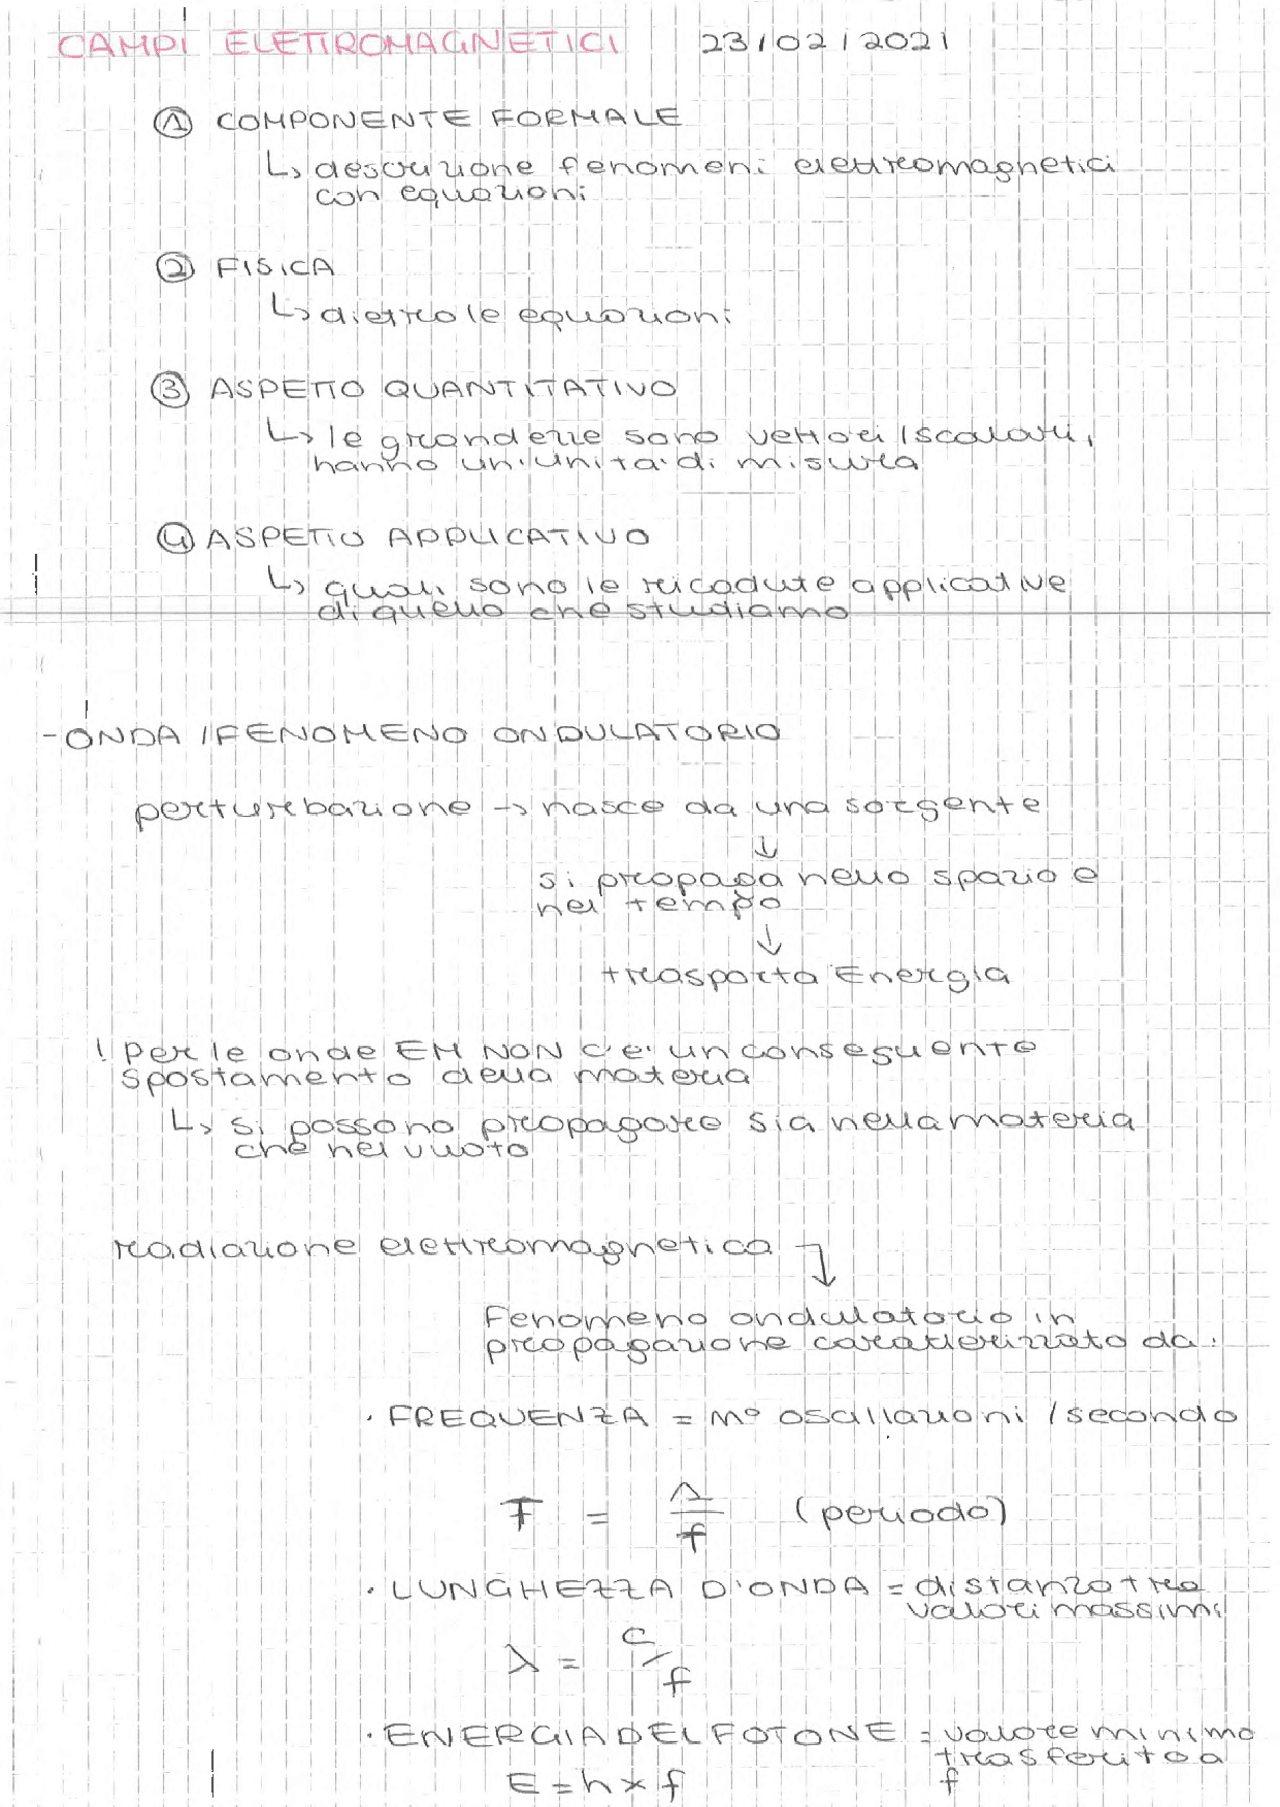 CAMPI ELETTROMAGNETICI 23/02/2021
① COMPONENTE FORMALE
↳ descrizione fenomeni elettromagnetici
con equazioni
② FISICA
↳ dietro le equazioni
③ ASPETTO QUANTITATIVO
↳ le grandezze sono vettori/scalari,
hanno un'unità di misura
④ ASPETTO APPLICATIVO
↳ quali sono le ricadute applicative
di quello che studiamo
- ONDA / FENOMENO ONDULATORIO
perturbazione → nasce da una sorgente
↓
si propaga nello spazio e
nel tempo
↓
trasporta Energia
! Per le onde EM NON c'è un conseguente
spostamento della materia
↳ si possono propagare sia nella materia
che nel vuoto
radiazione elettromagnetica ↴
Fenomeno ondulatorio in
propagazione caratterizzato da:
· FREQUENZA = n° oscillazioni / secondo
T = 1/f (periodo)
· LUNGHEZZA D'ONDA = distanza tra
valori massimi
λ = c/f
· ENERGIA DEL FOTONE = valore minimo
trasferito a
E = h x f f